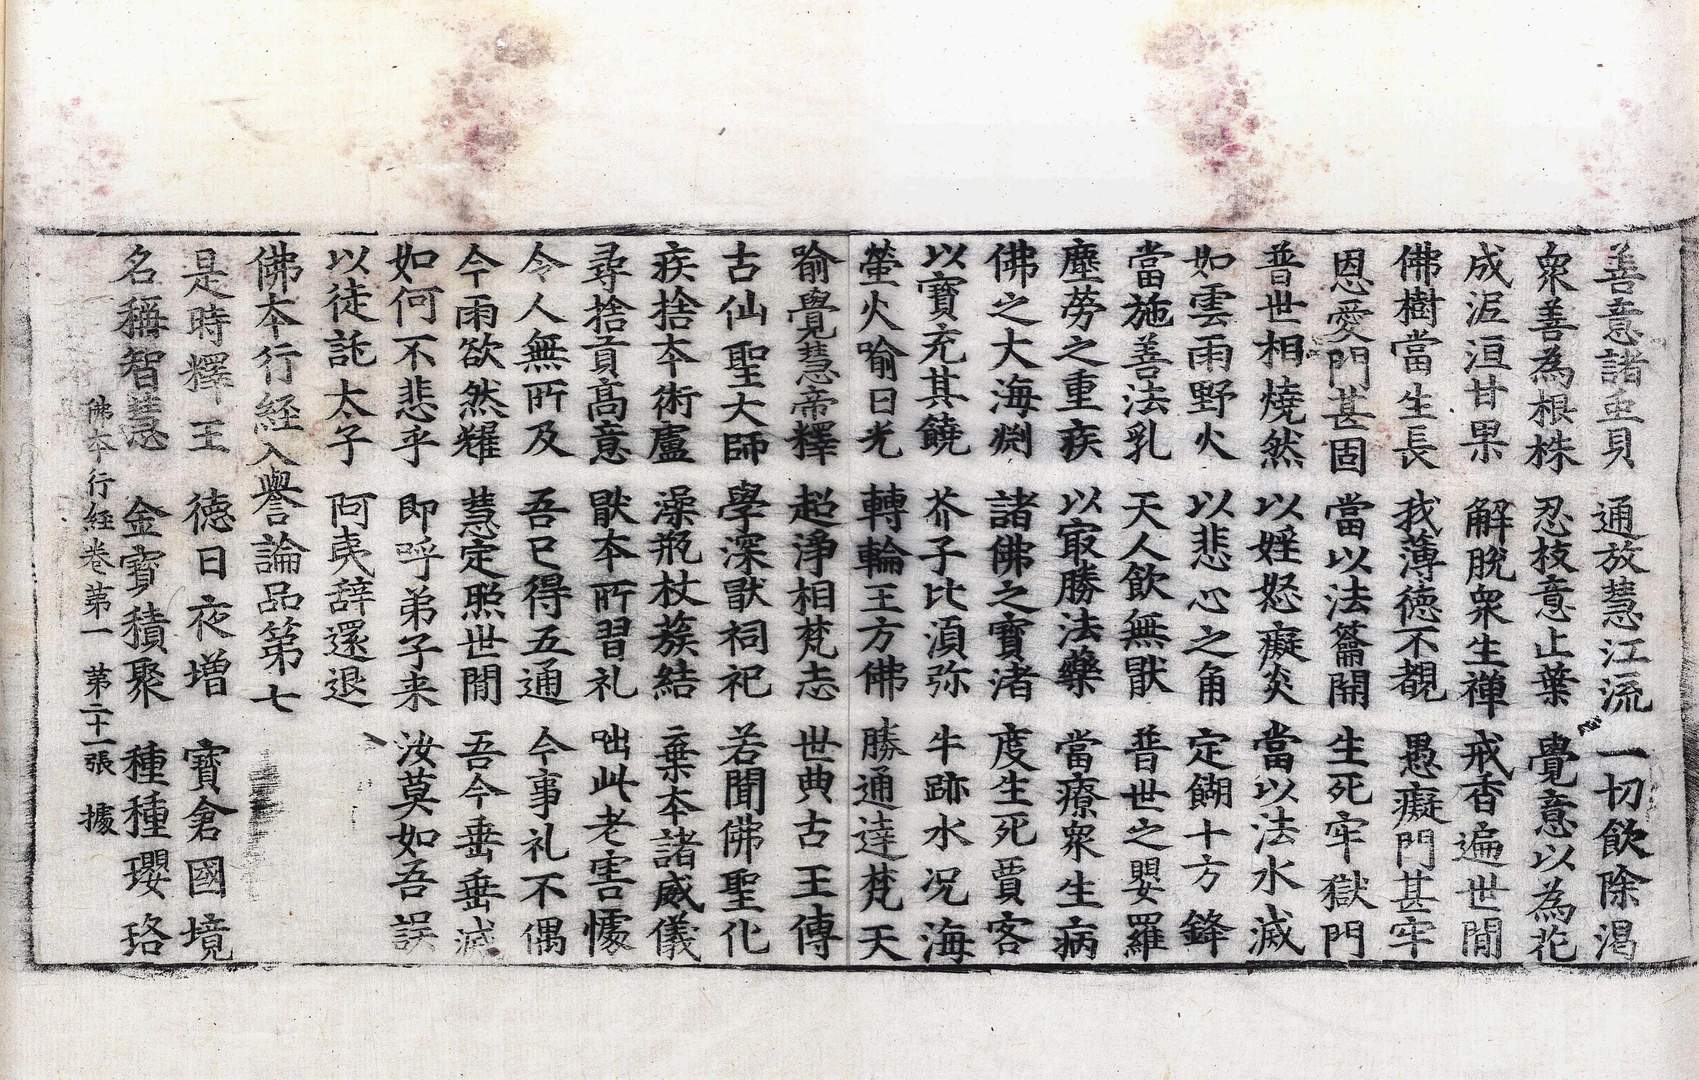 善意諸重貝　通放慧江流　一切飲除渴
衆善為根株　忍枝意止葉　覺意以為花
成泥洹甘果　解脫衆生禪　戒香遍世間
佛樹當生長　我薄德不覩　愚癡門甚牢
恩愛門甚固　當以法籥開　生死牢獄門
普世相燒然　以婬怒癡炎　當以法水滅
如雲雨野火　以悲心之角　定餬十方鋒
當施善法乳　天人飲無猒　普世之嬰羅
塵勞之重疾　以㝡勝法藥　當療衆生病
佛之大海渕　諸佛之寶渚　度生死賈客
以寶充其饒　芥子比湏弥　牛跡水况海
螢火喻日光　轉輪王方佛　勝通達梵天
喻覺慧帝釋　超淨相梵志　世典古王傳
古仙聖大師　學深猒祠祀　若聞佛聖化
疾捨夲術廬　澡瓶杖蔟結　棄本諸威儀
尋捨貢高意　猒本所習礼　咄此老害懅
令人無所及　吾已得五通　今事礼不偶
今雨欲然耀　慧定照世間　吾今垂垂滅
如何不悲乎　即呼弟子来　汝莫如吾誤
以徒託太子　阿夷辞還退
佛夲行経入譽論品第七
是時釋王　德日夜增　寶倉國境
名稱智慧　金寶積聚　種種瓔珞
佛夲行経卷第一　第二十一張　據